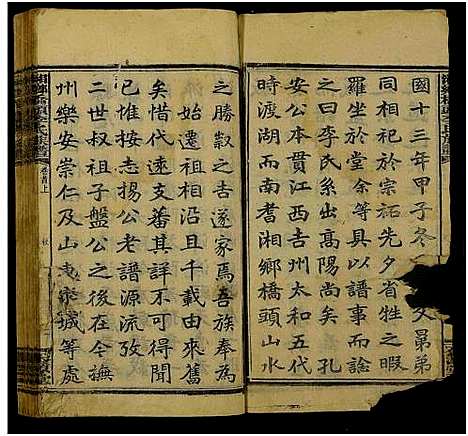 國十三年甲子冬
文勗弟
同相祀於宗祏先夕省牲之暇
羅坐於堂余等具以譜事而諗
之曰李氏系出髙陽尚矣孔
安公本貫江西吉州太和五代
時渡湖而南耆湘鄉橋頭山水
之勝㝮之吉遂家焉吾族奉為
始遷祖相沿且千載由來舊
矣惜代逺支蕃其詳不可得聞
已惟按志揚公老譜源流攷
二世叔祖子盤公之後在今撫
州樂安崇仁及山
城等處
卷首上